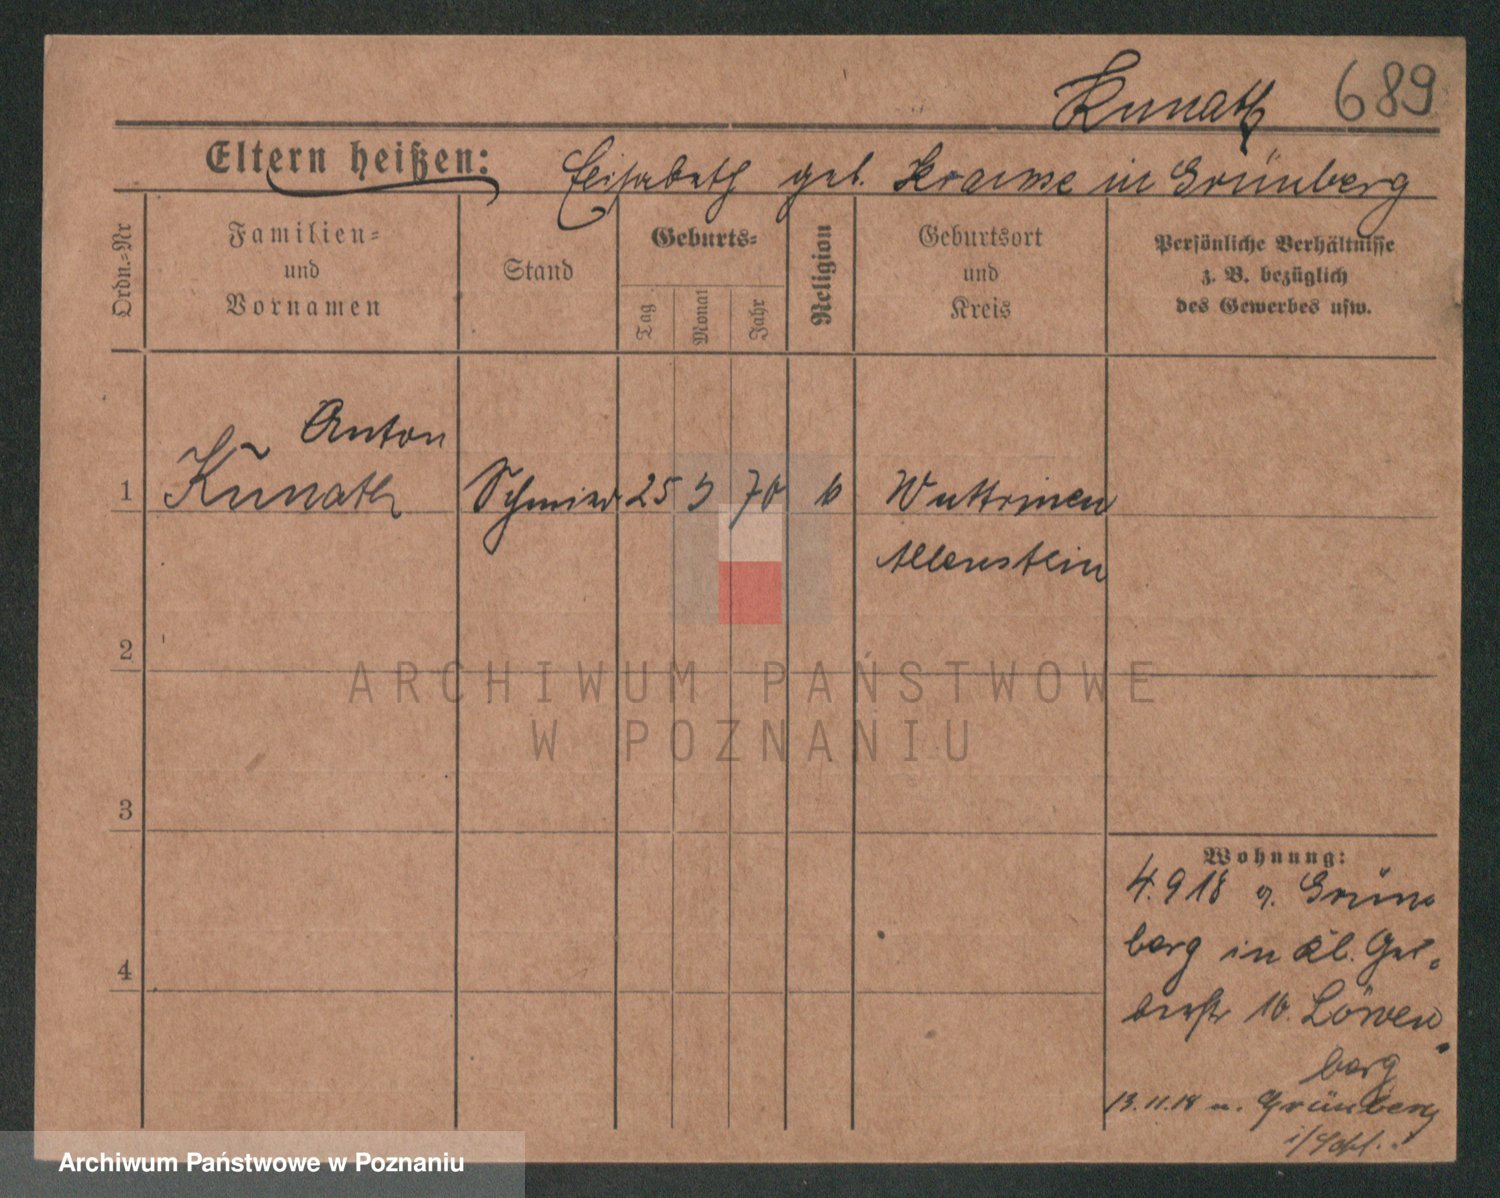 Kunath 689
Eltern heißen: Elisabeth geb. Krause in Grünberg
Ordn.-Nr
Familien-
und
Vornamen
Stand
Geburts-
Tag
Monat
Jahr
Religion
Geburtsort
und
Kreis
Persönliche Verhältnisse
z. B. bezüglich
des Gewerbes usw.
Anton
1 Kunath Schmied 25 5 70 k Wuttrinen
Allenstein
2
3
4
Wohnung:
4.9 18 v. Grün-
berg in kl. Ger-
berstr 10. Löwen
berg
13.11.18 n. Grünberg
i/Schl.
ARCHIWUM PAŃSTWOWE
W POZNANIU
Archiwum Państwowe w Poznaniu